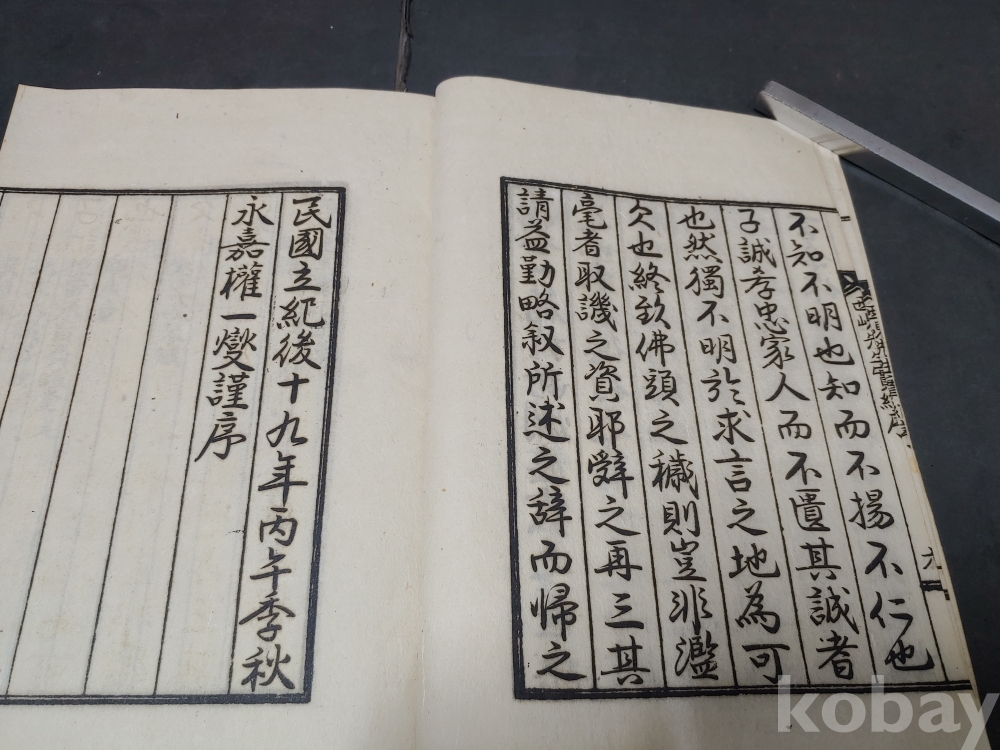 不知不明也知而不揚不仁也
子誠孝忠家人而不匱其誠者
也然獨不明於求言之地為可
欠也終致佛頭之穢則豈非濫
毫者取譏之資耶辭之再三其
請益勤略叙所述之辞而歸之
民國立紀後十九年丙午季秋
永嘉權一燮謹序
kobay